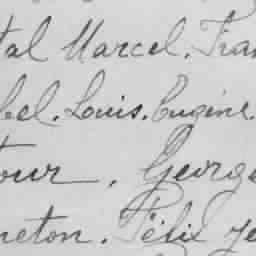 tal Marcel. Fran
bel. Louis. Eugène.
tour. George
neton. Félix Je